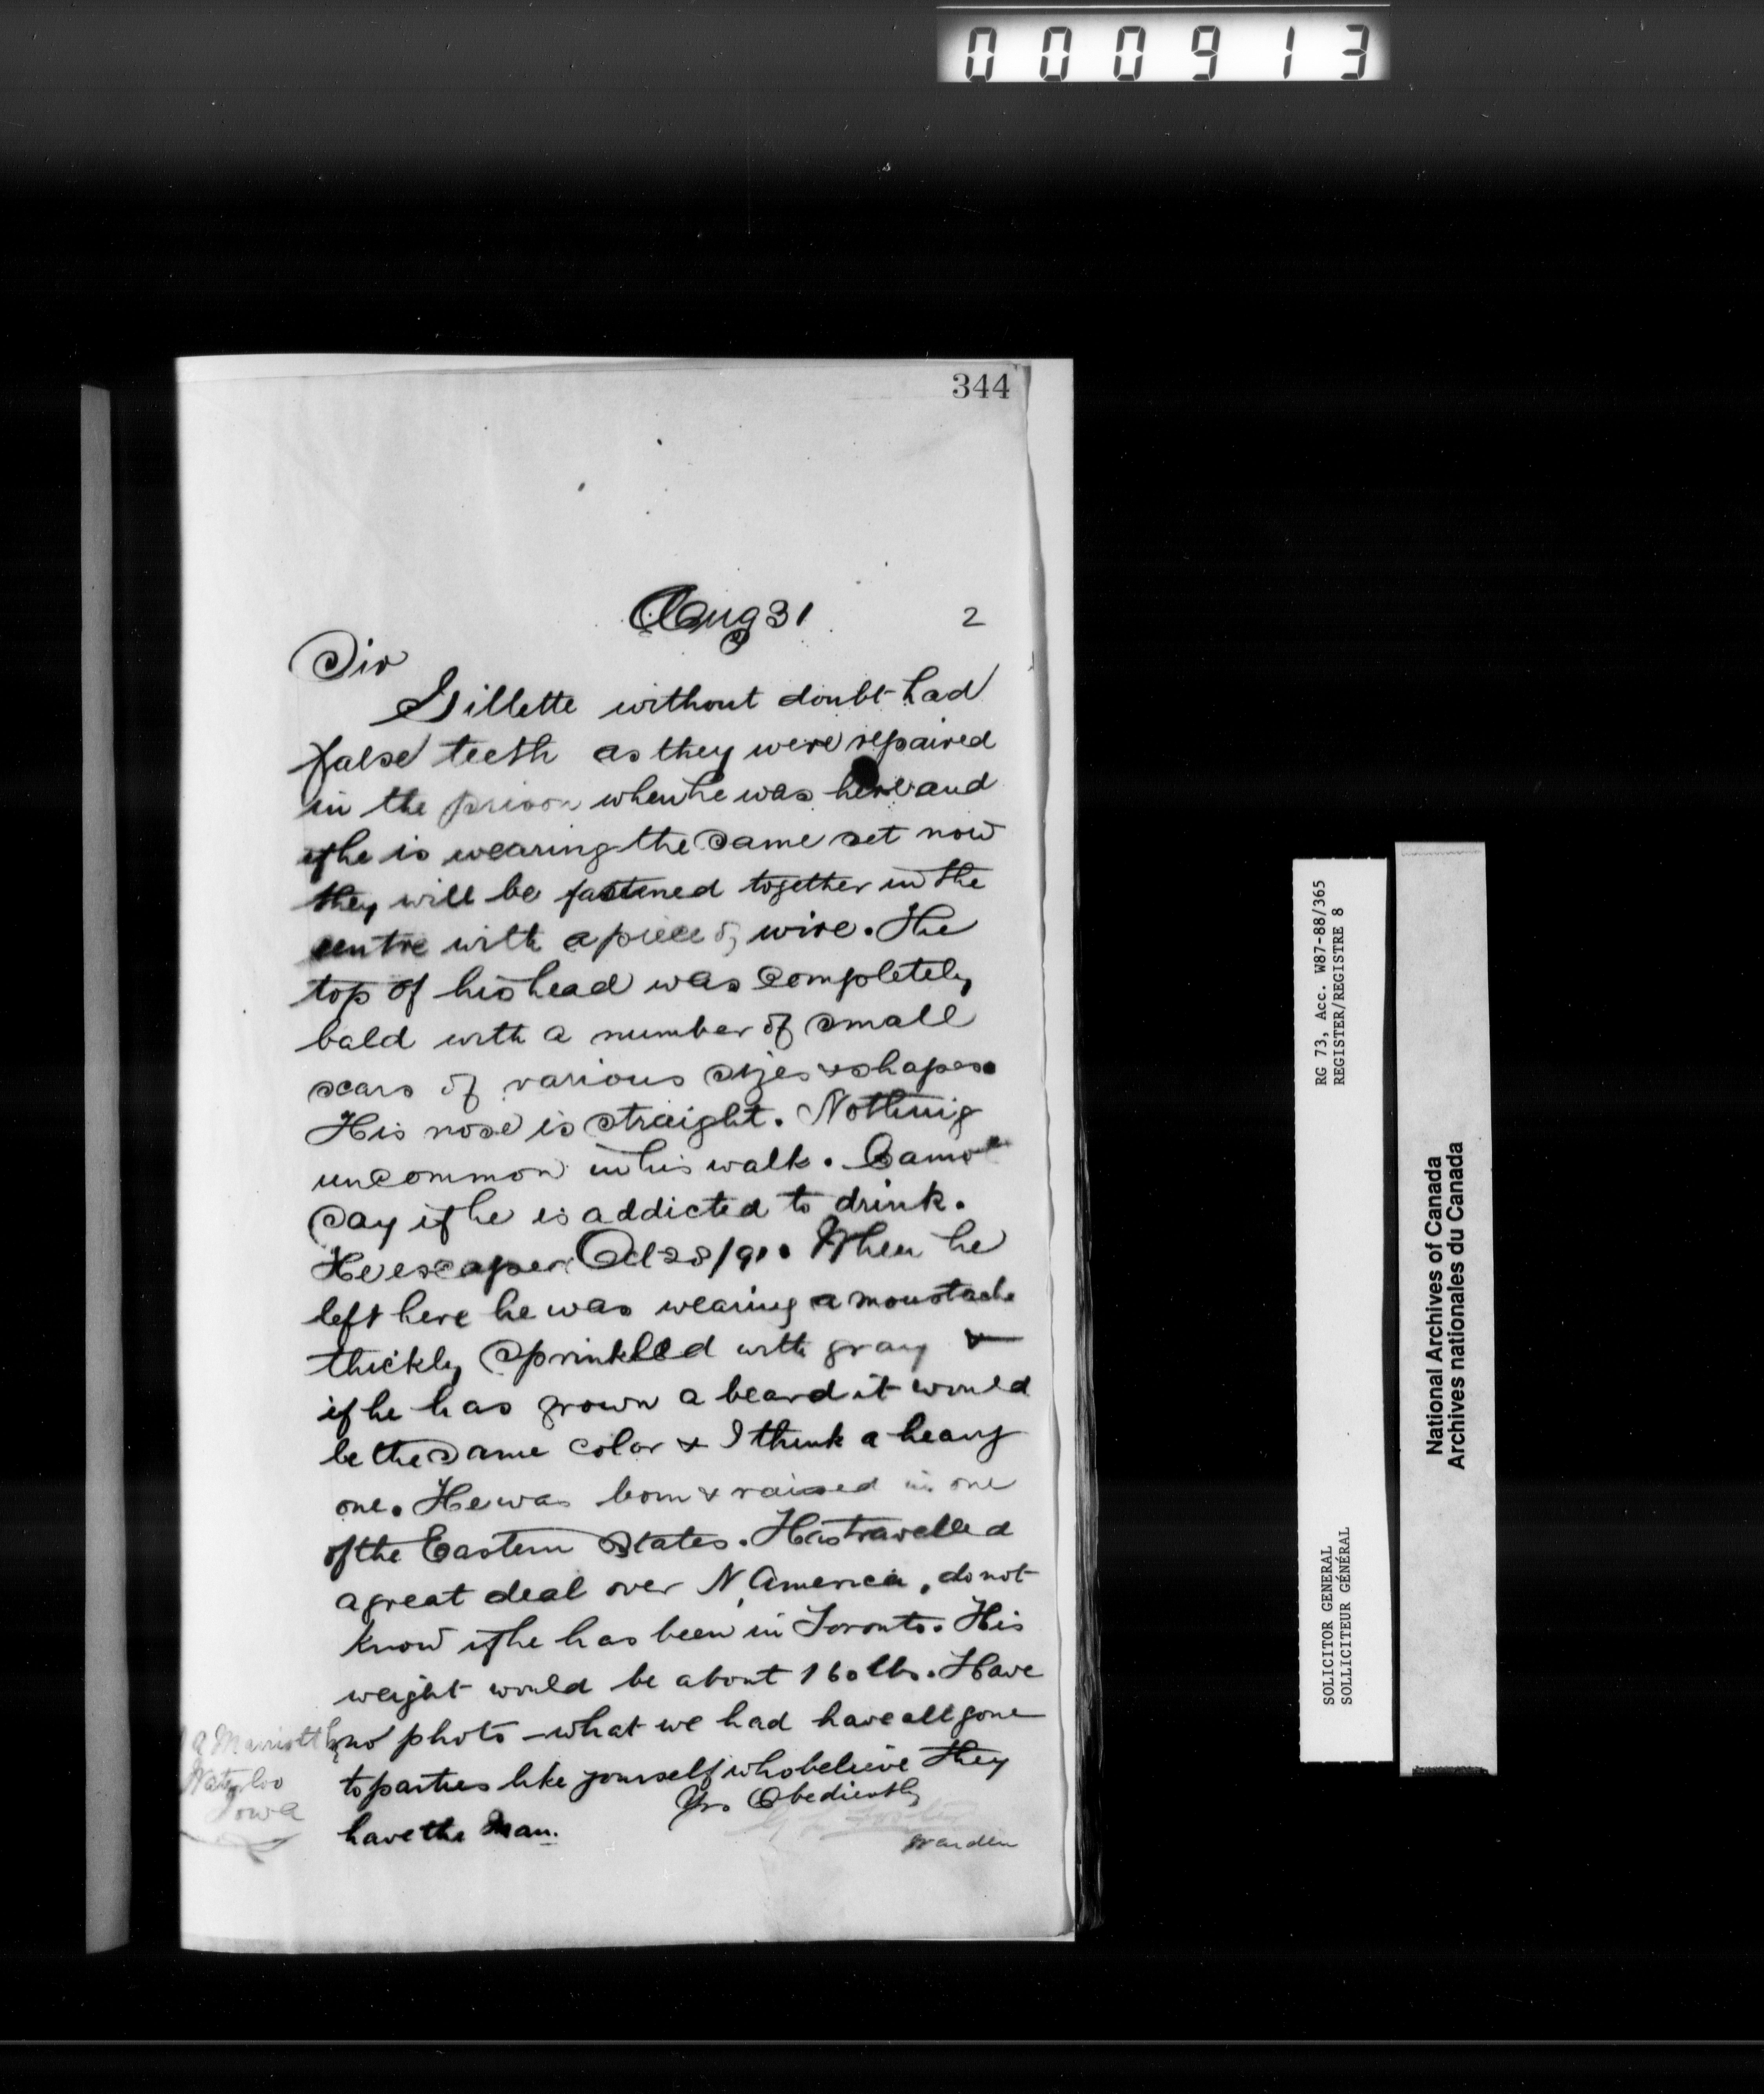 000913
344
Aug 31 2
Sir
Gillette without doubt had
false teeth as they were repaired
in the prison when he was here and
if he is wearing the same set now
they will be fastened together in the
centre with a piece of wire. The
top of his head was completely
bald with a number of small
scars of various sizes & shapes.
His nose is straight. Nothing
uncommon in his walk. Cannot
say if he is addicted to drink.
He escaped Oct 28/91. When he
left here he was wearing a moustache
thickly sprinkled with gray &
if he has grown a beard it would
be the same color & I think a heavy
one. He was born & raised in one
of the Eastern States. Has travelled
a great deal over N. America, do not
know if he has been in Toronto. His
weight would be about 160 lbs. Have
no photo - what we had have all gone
to parties like yourself who believe they
have the man.
Yrs Obediently
Warden
Marriott
Waterloo
Iowa
RG 73, Acc. W87-88/365
REGISTER/REGISTRE 8
SOLICITOR GENERAL
SOLLICITEUR GÉNÉRAL
National Archives of Canada
Archives nationales du Canada